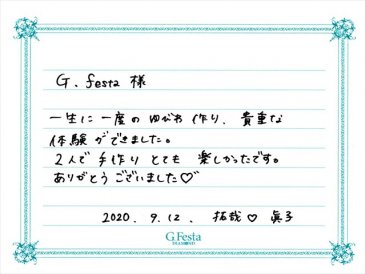 G. festa 様
一生に一度のゆびわ作り、貴重な
体験ができました。
2人で手作りとても楽しかったです。
ありがとうございました♡
2020. 9.12. 拓哉♡眞子
G.Festa
DIAMOND